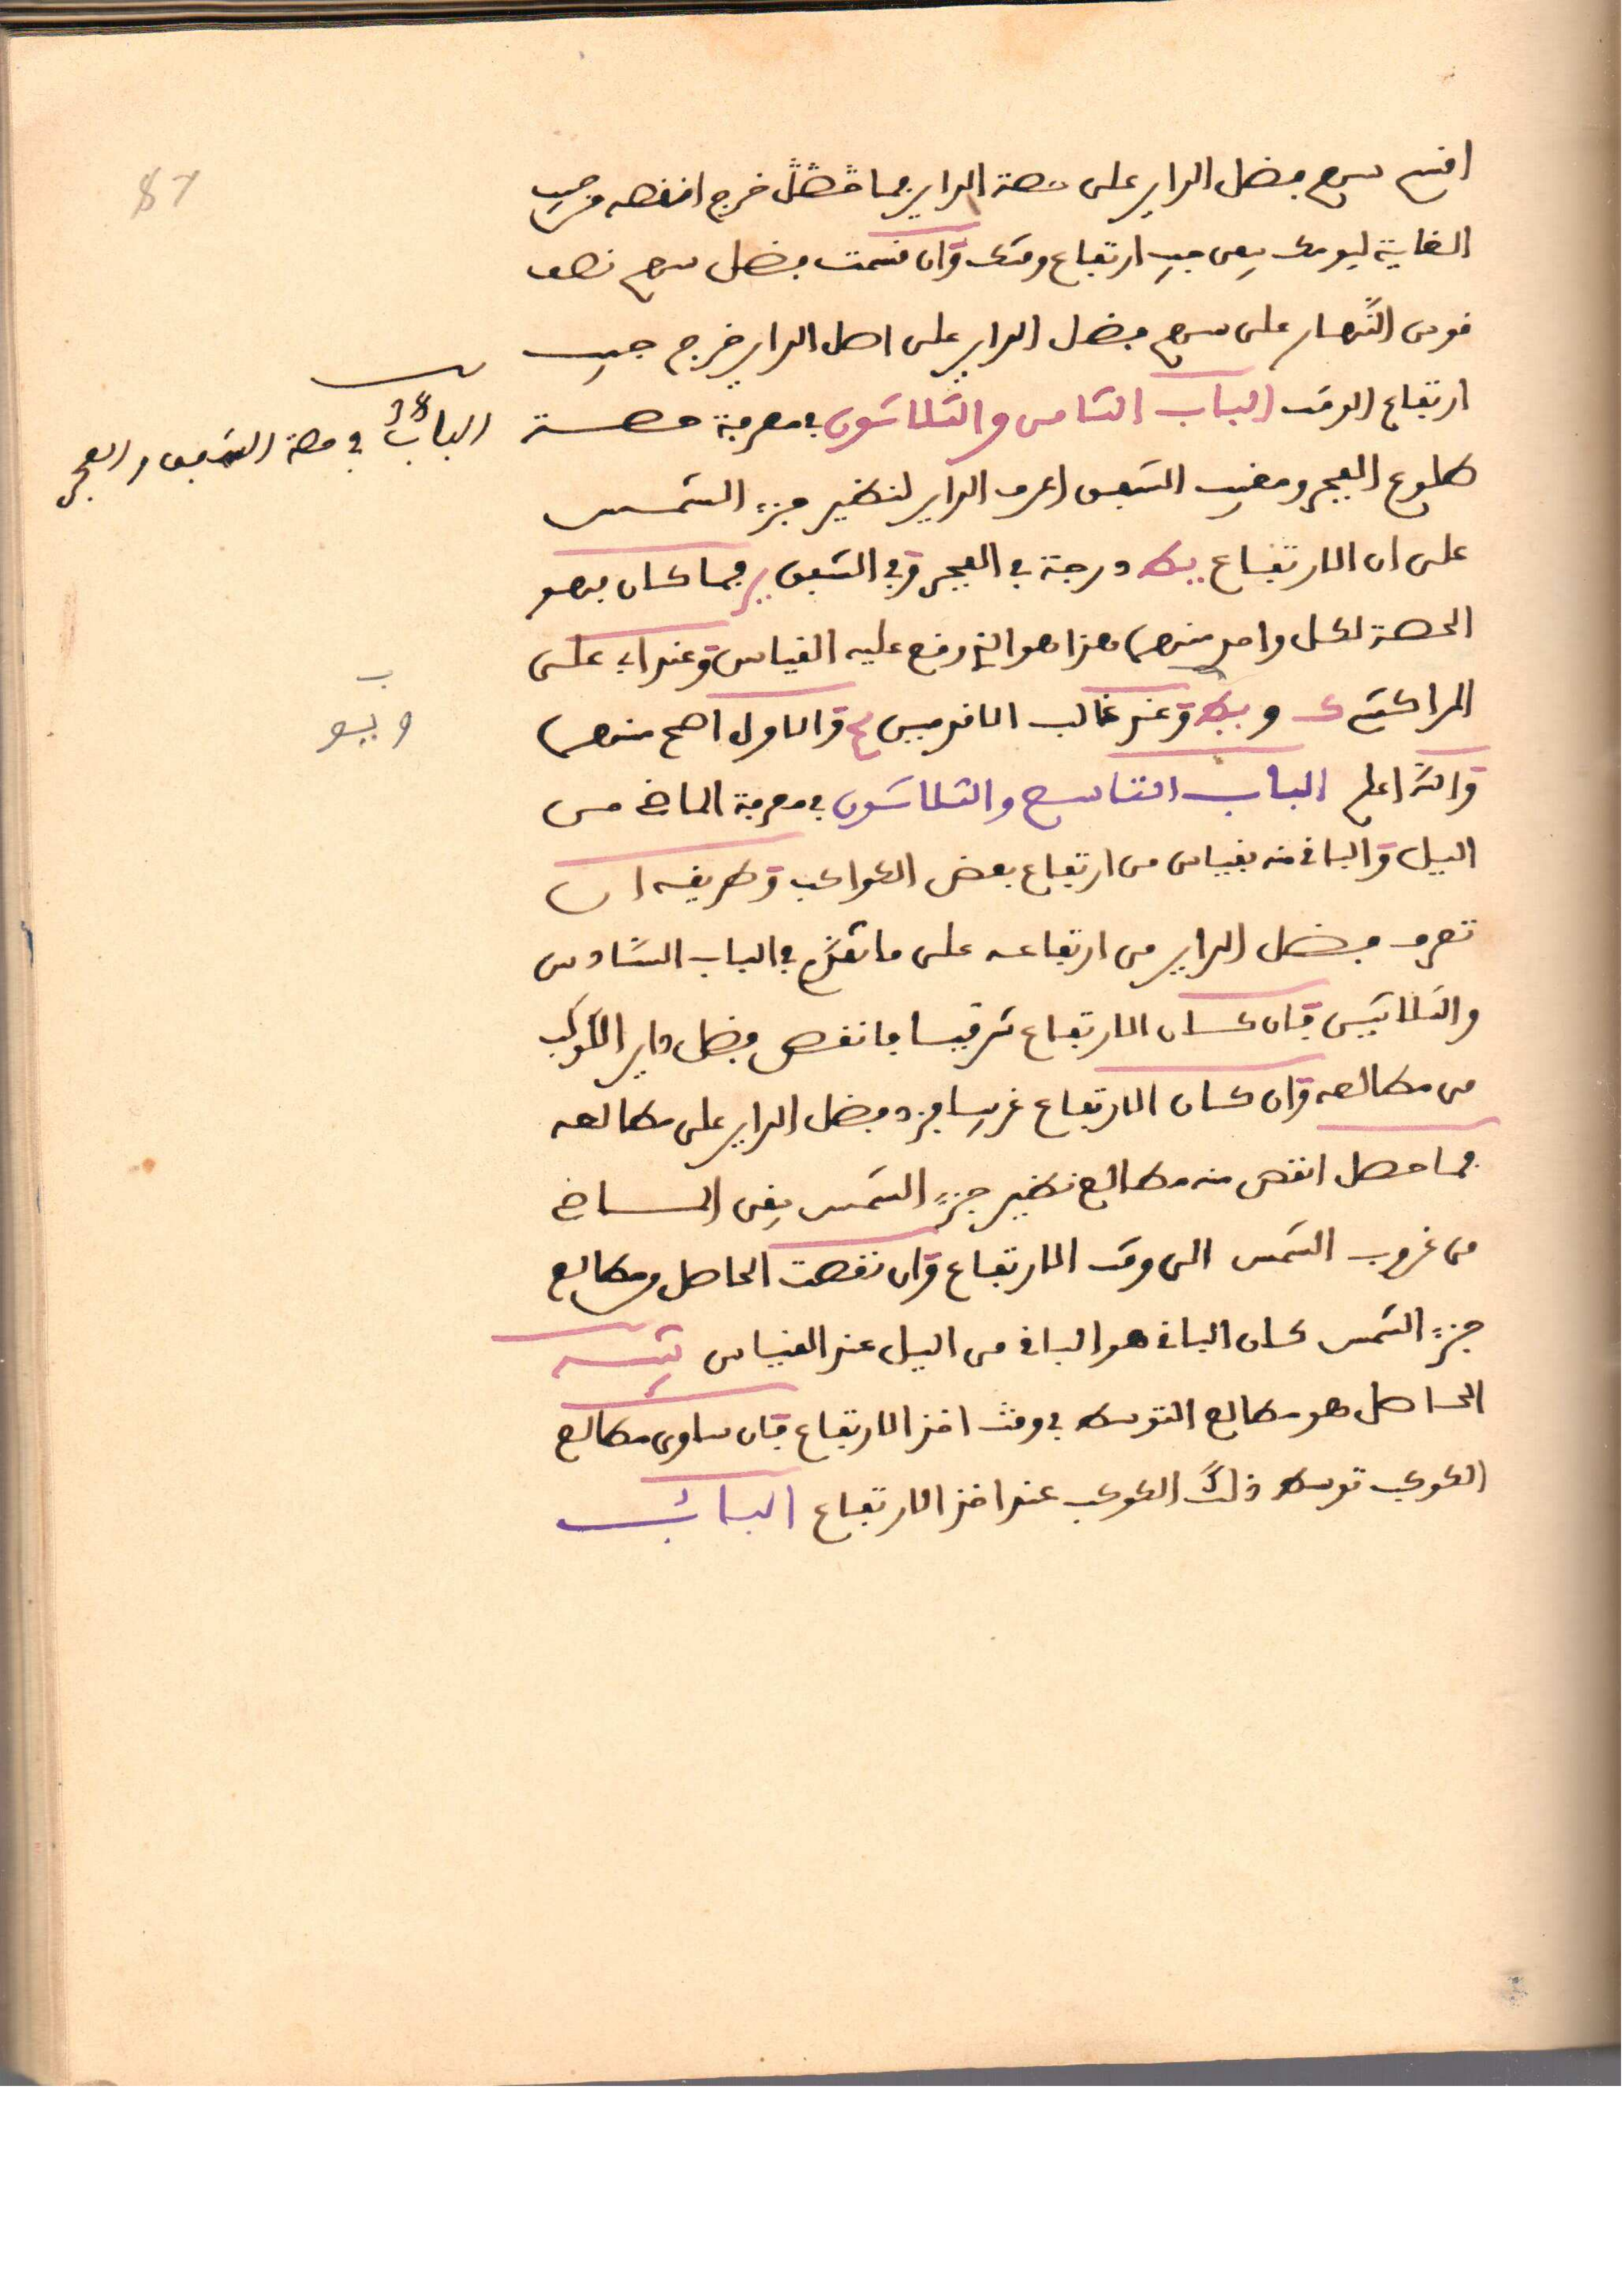 87
اقسم سهم فضل الداير على حصة الداير فما خرج انقصه من جيب
الغاية ليومك يبقى جيب ارتفاع وقتك وان قسمت فضل سهم نصف
قوس النهار على سهم فضل الداير على اصل الداير خرج جيب
ارتفاع الوقت الباب الثامن والثلاثون في معرفة حصة
الباب 38 في حصة الشفق والفجر
طلوع الفجر ومغيب الشفق اعرف الداير لنظير جزء الشمس
على ان الارتفاع يط درجة في الفجر وفي الشفق يز فما كان فهو
الحصة لكل واحد منهما هذا هو الذي وقع عليه القياس وعند ابي علي
المراكشي ك و يو وعند غالب الاقدمين يح والاول اصح منهما
و يو
والله اعلم الباب التاسع والثلاثون في معرفة الماضي من
اليل والباقي منه بقياس من ارتفاع بعض الكواكب وطريقه ان
تعرف فضل الداير من ارتفاعه على ما تقدم في الباب السادس
والثلاثين فان كان الارتفاع شرقيا فانقص فضل داير الكوكب
من مطالعه وان كان الارتفاع غربيا فزد فضل الداير على مطالعه
فما حصل انقص منه مطالع نظير جزء الشمس يبقى الماضي
من غروب الشمس الى وقت الارتفاع وان نقصت الحاصل من مطالع
جزء الشمس كان الباقي هو الباقي من اليل عند القياس تنبيه
الحاصل هو مطالع التوسط في وقت اخذ الارتفاع فان ساوى مطالع
الكوكب توسط ذلك الكوكب عند اخذ الارتفاع الباب